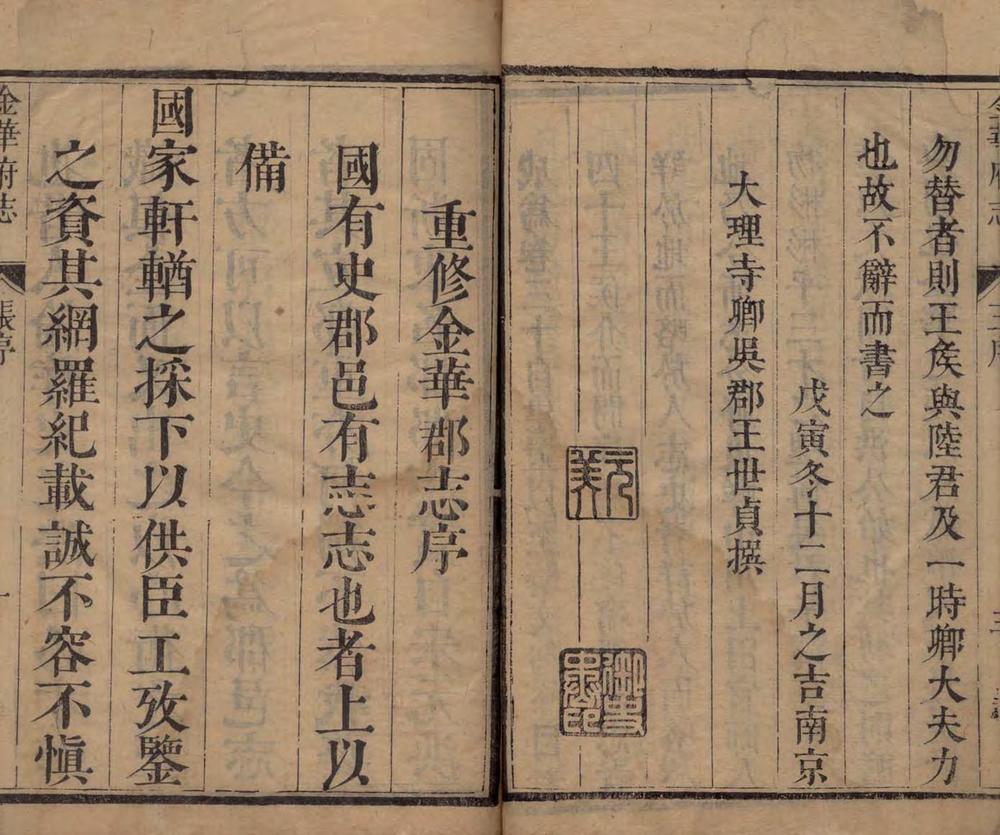 勿替者則王矦與陸君及一時卿大夫力
也故不辭而書之
戊寅冬十二月之吉南京
大理寺卿吳郡王世貞撰
元美
重修金華郡志序
國有史郡邑有志志也者上以
備
國家軒輶之採下以供臣工攷鑒
之資其網羅紀載誠不容不愼
金華府志
張序
一